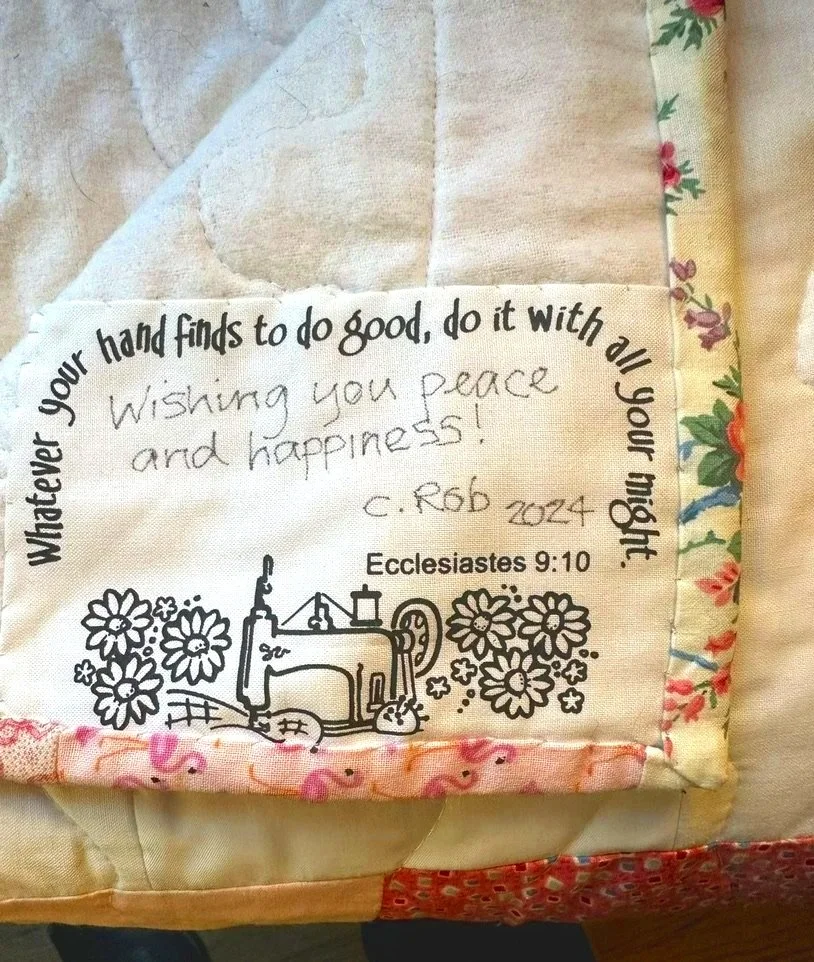 Whatever your hand finds to do good, do it with all your might.
Wishing you peace
and happiness!
C. Rob 2024
Ecclesiastes 9:10